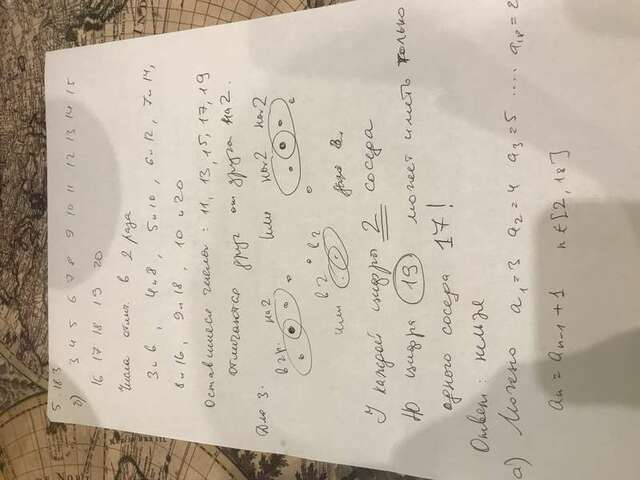 5.183
б) 3 4 5 6 7 8 9 10 11 12 13 14 15
16 17 18 19 20
Числа отлич. в 2 раза
3 и 6, 4 и 8, 5 и 10, 6 и 12, 7 и 14,
8 и 16, 9 и 18, 10 и 20
Оставшиеся числа: 11, 13, 15, 17, 19
отличаются друг от друга на 2.
Для 3:
в 2 р. на 2 или на 2 на 2
или в 2 в 2
У каждой цифры 2 соседа
Но цифра 19 может иметь только
одного соседа 17!
Ответ: нельзя
а) Можно a1=3 a2=4 a3=5 .... a18=2
an = an-1 + 1 n∈[2, 18]